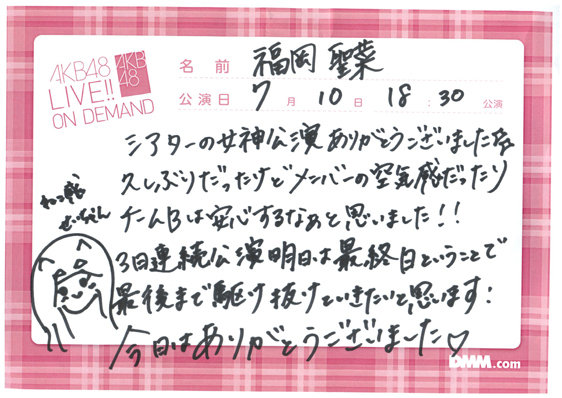 AKB48
LIVE!!
ON DEMAND
AKB
48
名前 福岡 聖菜
公演日 7月10日 18:30公演
シアターの女神公演ありがとうございました
久しぶりだったけどメンバーの空気感だったり
チームBは安心するなあと思いました!!
3日連続公演明日は最終日ということで
最後まで駆け抜けていきたいと思います!
今日はありがとうございました♡
せいちゃん
DMM.com